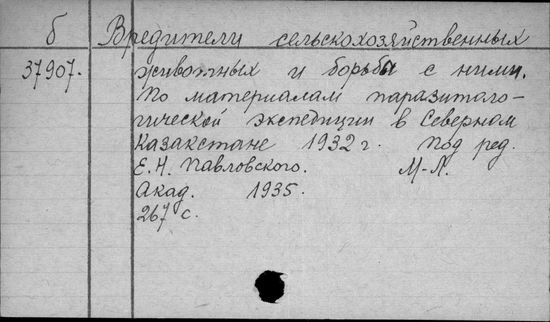 б Вредители сельскохозяйственных
37907. животных и борьба с ними.
По материалам паразитоло-
гической экспедиции в Северном
Казахстане 1932 г. Под ред.
Е.Н. Павловского. М-Л.
Акад. 1935.
267 с.